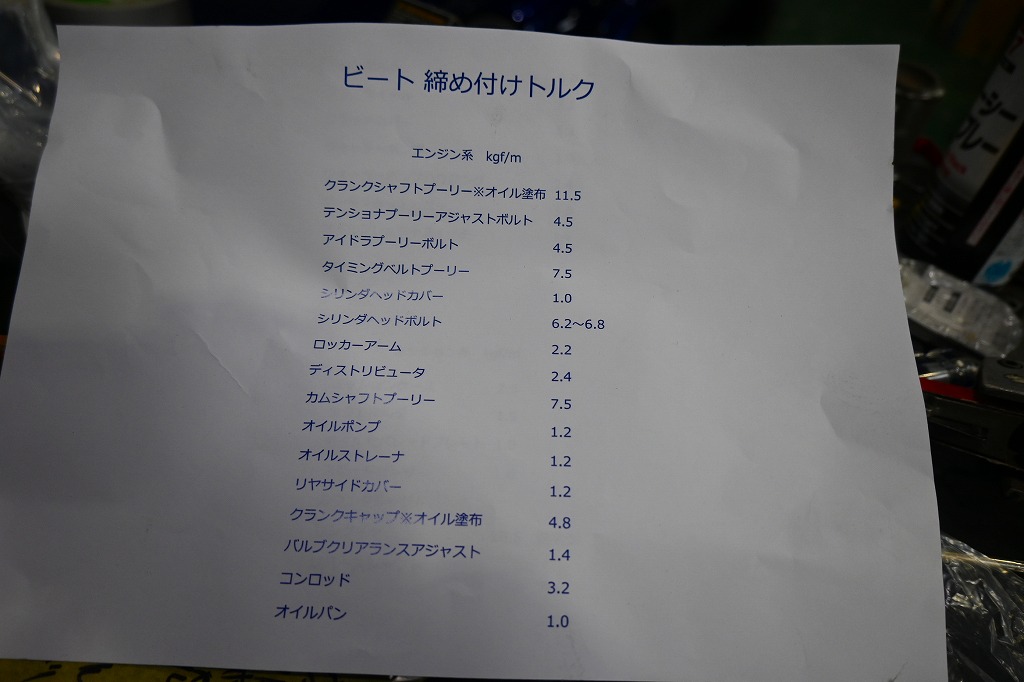 ビート 締め付けトルク
エンジン系 kgf/m
クランクシャフトプーリー※オイル塗布 11.5
テンショナプーリーアジャストボルト 4.5
アイドラプーリーボルト 4.5
タイミングベルトプーリー 7.5
シリンダヘッドカバー 1.0
シリンダヘッドボルト 6.2～6.8
ロッカーアーム 2.2
ディストリビュータ 2.4
カムシャフトプーリー 7.5
オイルポンプ 1.2
オイルストレーナ 1.2
リヤサイドカバー 1.2
クランクキャップ※オイル塗布 4.8
バルブクリアランスアジャスト 1.4
コンロッド 3.2
オイルパン 1.0